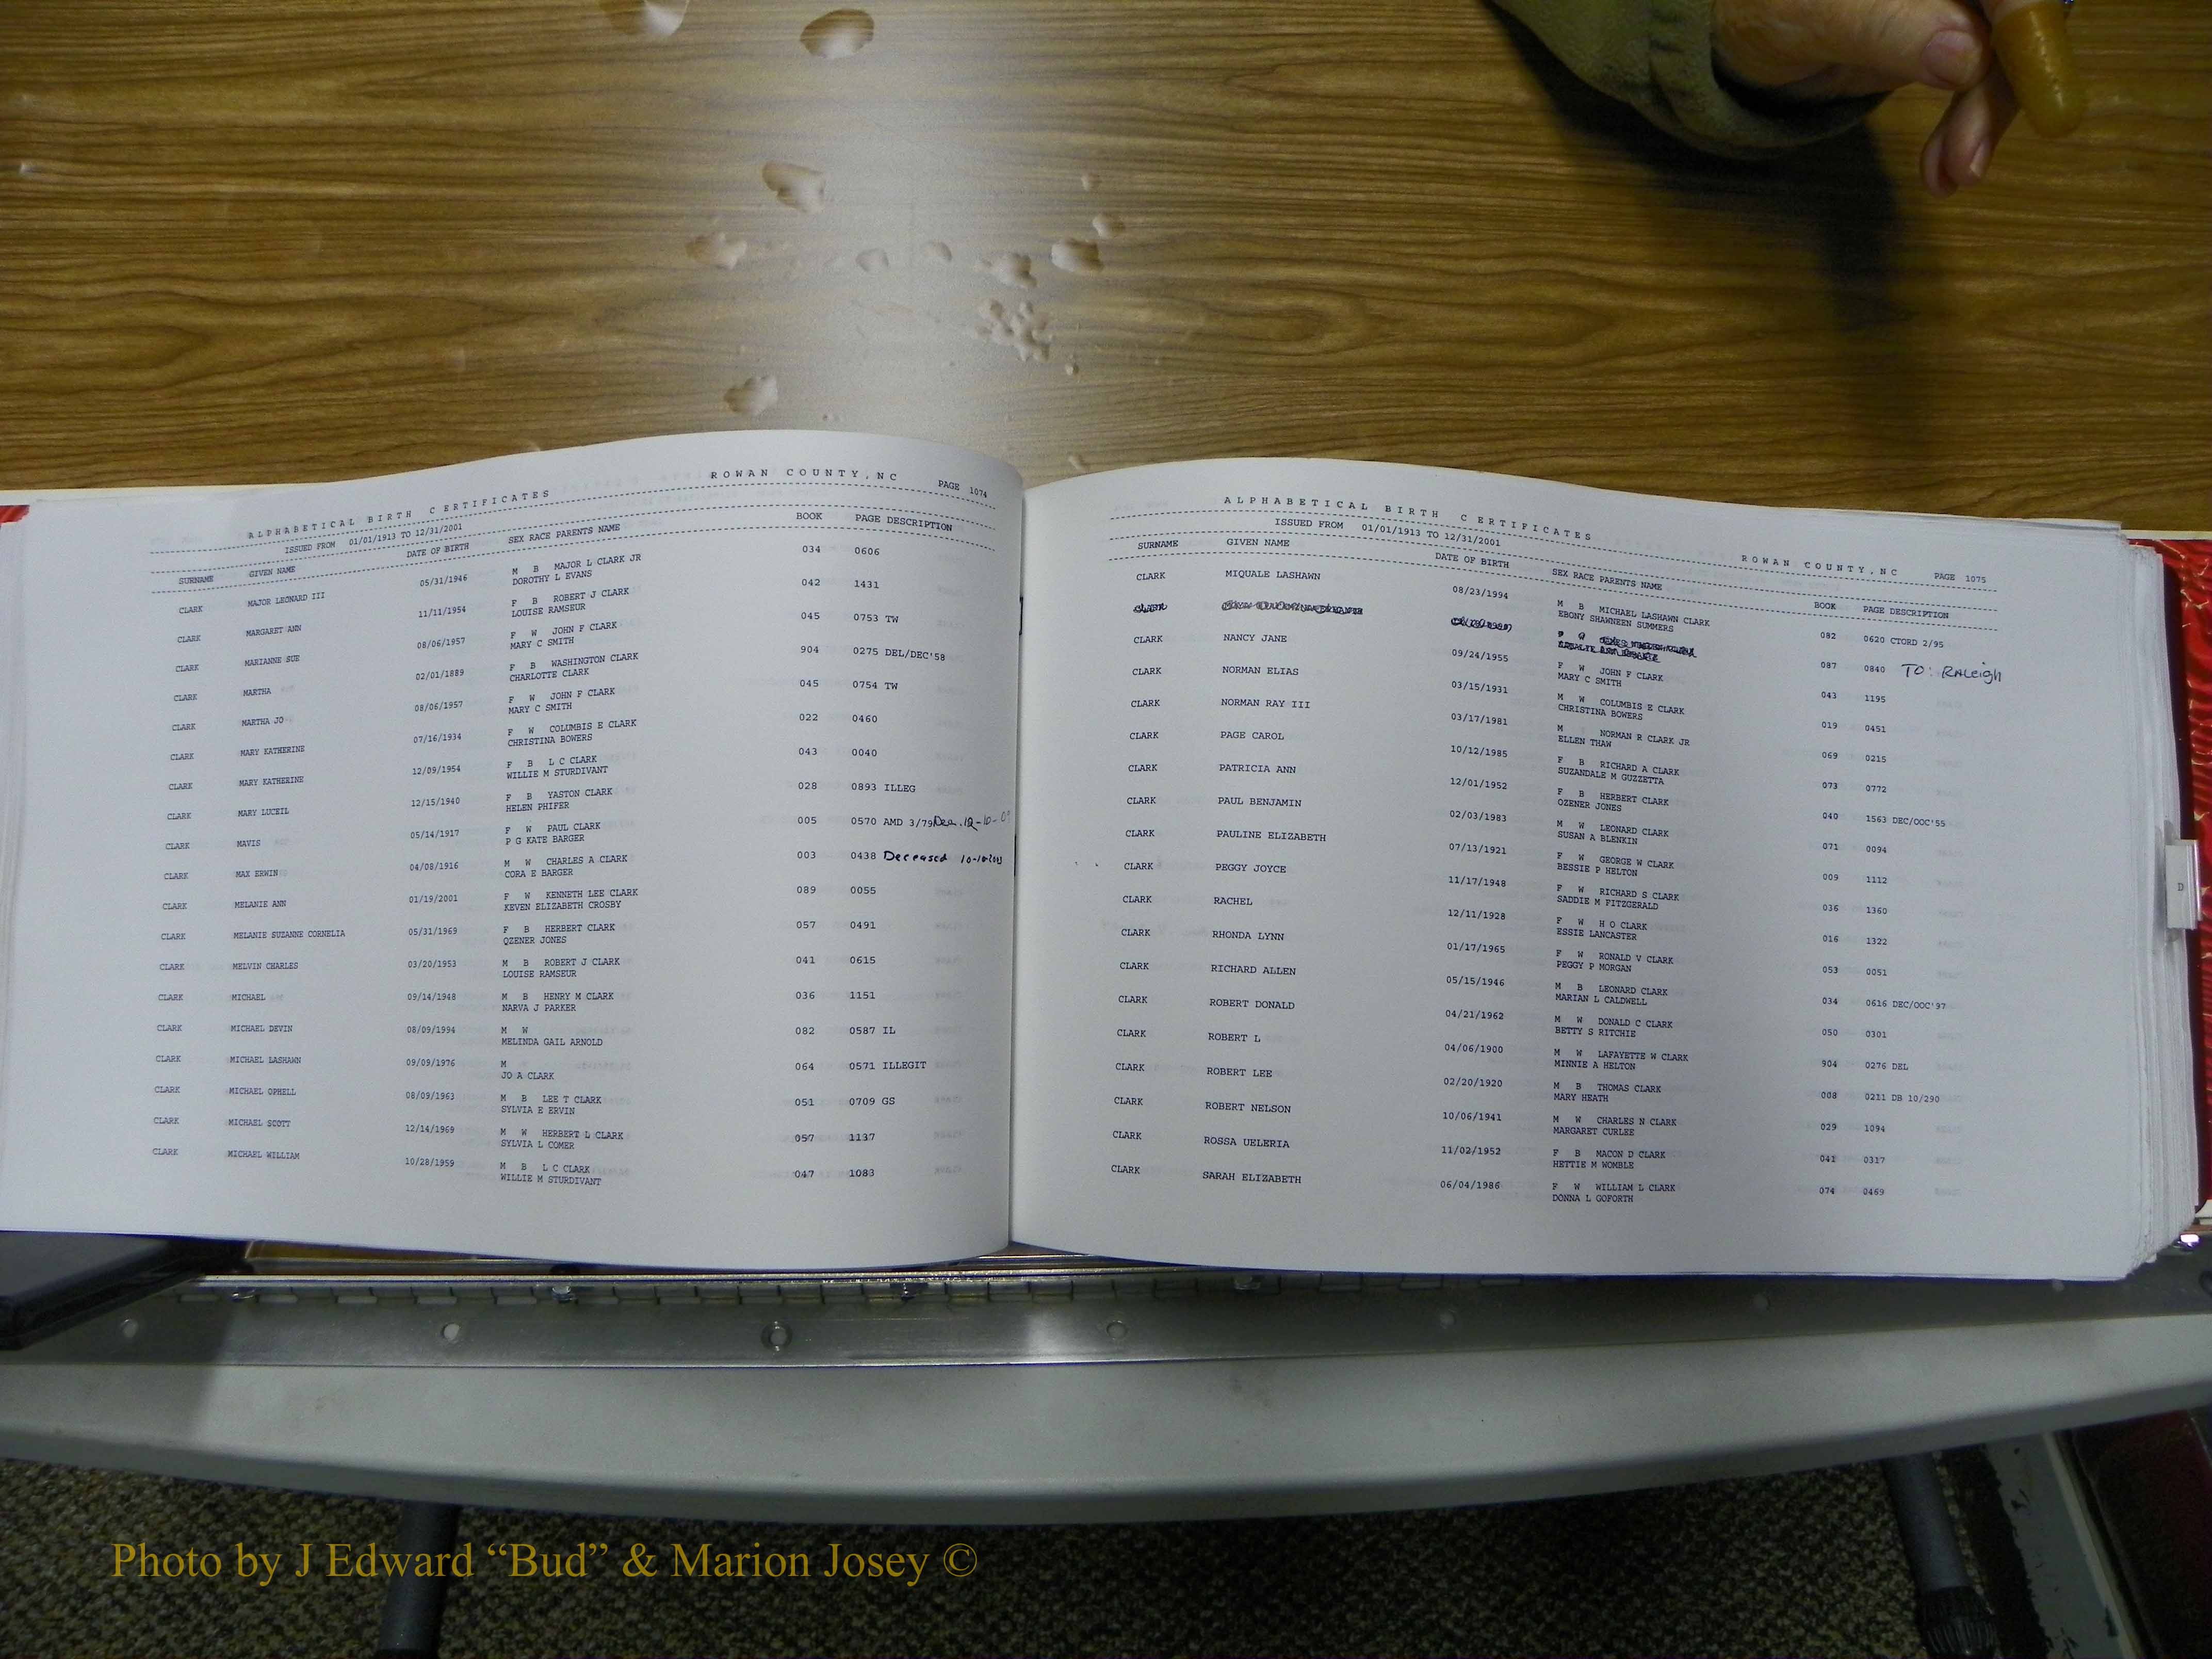 ALPHABETICAL BIRTH CERTIFICATES ROWAN COUNTY,NC PAGE 1074
ISSUED FROM 01/01/1913 TO 12/31/2001
SURNAME GIVEN NAME DATE OF BIRTH SEX RACE PARENTS NAME BOOK PAGE DESCRIPTION
CLARK MAJOR LEONARD III 05/31/1946 M B MAJOR L CLARK JR 034 0606
DOROTHY L EVANS
CLARK MARGARET ANN 11/11/1954 F B ROBERT J CLARK 042 1431
LOUISE RAMSEUR
CLARK MARIANNE SUE 08/06/1957 F W JOHN F CLARK 045 0753 TW
MARY C SMITH
CLARK MARTHA 02/01/1889 F B WASHINGTON CLARK 904 0275 DEL/DEC'58
CHARLOTTE CLARK
CLARK MARTHA JO 08/06/1957 F W JOHN F CLARK 045 0754 TW
MARY C SMITH
CLARK MARY KATHERINE 07/16/1934 F W COLUMBIS E CLARK 022 0460
CHRISTINA BOWERS
CLARK MARY KATHERINE 12/09/1954 F B L C CLARK 043 0040
WILLIE M STURDIVANT
CLARK MARY LUCEIL 12/15/1940 F B YASTON CLARK 028 0893 ILLEG
HELEN PHIFER
CLARK MAVIS 05/14/1917 F W PAUL CLARK 005 0570 AMD 3/79
P G KATE BARGER
CLARK MAX ERWIN 04/08/1916 M W CHARLES A CLARK 003 0438 Deceased
CORA E BARGER
CLARK MELANIE ANN 01/19/2001 F W KENNETH LEE CLARK 089 0055
KEVEN ELIZABETH CROSBY
CLARK MELANIE SUZANNE CORNELIA 05/31/1969 F B HERBERT CLARK 057 0491
OZENER JONES
CLARK MELVIN CHARLES 03/20/1953 M B ROBERT J CLARK 041 0615
LOUISE RAMSEUR
CLARK MICHAEL 09/14/1948 M B HENRY M CLARK 036 1151
NARVA J PARKER
CLARK MICHAEL DEVIN 08/09/1994 M W 082 0587 IL
MELINDA GAIL ARNOLD
CLARK MICHAEL LASHAWN 09/09/1976 M 064 0571 ILLEGIT
JO A CLARK
CLARK MICHAEL OPHELL 08/09/1963 M B LEE T CLARK 051 0709 GS
SYLVIA E ERVIN
CLARK MICHAEL SCOTT 12/14/1969 M W HERBERT L CLARK 057 1137
SYLVIA L COMER
CLARK MICHAEL WILLIAM 10/28/1959 M B L C CLARK 047 1083
WILLIE M STURDIVANT
ALPHABETICAL BIRTH CERTIFICATES ROWAN COUNTY,NC PAGE 1075
ISSUED FROM 01/01/1913 TO 12/31/2001
SURNAME GIVEN NAME DATE OF BIRTH SEX RACE PARENTS NAME BOOK PAGE DESCRIPTION
CLARK MIQUALE LASHAWN 08/23/1994 M B MICHAEL LASHAWN CLARK 082 0620 CTORD 2/95
EBONY SHAWNEEN SUMMERS
087 0840 TO: RALeigh
CLARK NANCY JANE 09/24/1955 F W JOHN F CLARK 043 1195
MARY C SMITH
CLARK NORMAN ELIAS 03/15/1931 M W COLUMBIS E CLARK 019 0451
CHRISTINA BOWERS
CLARK NORMAN RAY III 03/17/1981 M NORMAN R CLARK JR 069 0215
ELLEN THAW
CLARK PAGE CAROL 10/12/1985 F B RICHARD A CLARK 073 0772
SUZANDALE M GUZZETTA
CLARK PATRICIA ANN 12/01/1952 F B HERBERT CLARK 040 1563 DEC/OOC'55
OZENER JONES
CLARK PAUL BENJAMIN 02/03/1983 M W LEONARD CLARK 071 0094
SUSAN A BLENKIN
CLARK PAULINE ELIZABETH 07/13/1921 F W GEORGE W CLARK 009 1112
BESSIE P HELTON
CLARK PEGGY JOYCE 11/17/1948 F W RICHARD S CLARK 036 1360
SADDIE M FITZGERALD
CLARK RACHEL 12/11/1928 F W H O CLARK 016 1322
ESSIE LANCASTER
CLARK RHONDA LYNN 01/17/1965 F W RONALD V CLARK 053 0051
PEGGY P MORGAN
CLARK RICHARD ALLEN 05/15/1946 M B LEONARD CLARK 034 0616 DEC/OOC'97
MARIAN L CALDWELL
CLARK ROBERT DONALD 04/21/1962 M W DONALD C CLARK 050 0301
BETTY S RITCHIE
CLARK ROBERT L 04/06/1900 M W LAFAYETTE W CLARK 904 0276 DEL
MINNIE A HELTON
CLARK ROBERT LEE 02/20/1920 M B THOMAS CLARK 008 0211 DB 10/290
MARY HEATH
CLARK ROBERT NELSON 10/06/1941 M W CHARLES N CLARK 029 1094
MARGARET CURLEE
CLARK ROSSA UELERIA 11/02/1952 F B MACON D CLARK 041 0317
HETTIE M WOMBLE
CLARK SARAH ELIZABETH 06/04/1986 F W WILLIAM L CLARK 074 0469
DONNA L GOFORTH
D
Photo by J Edward “Bud” & Marion Josey ©